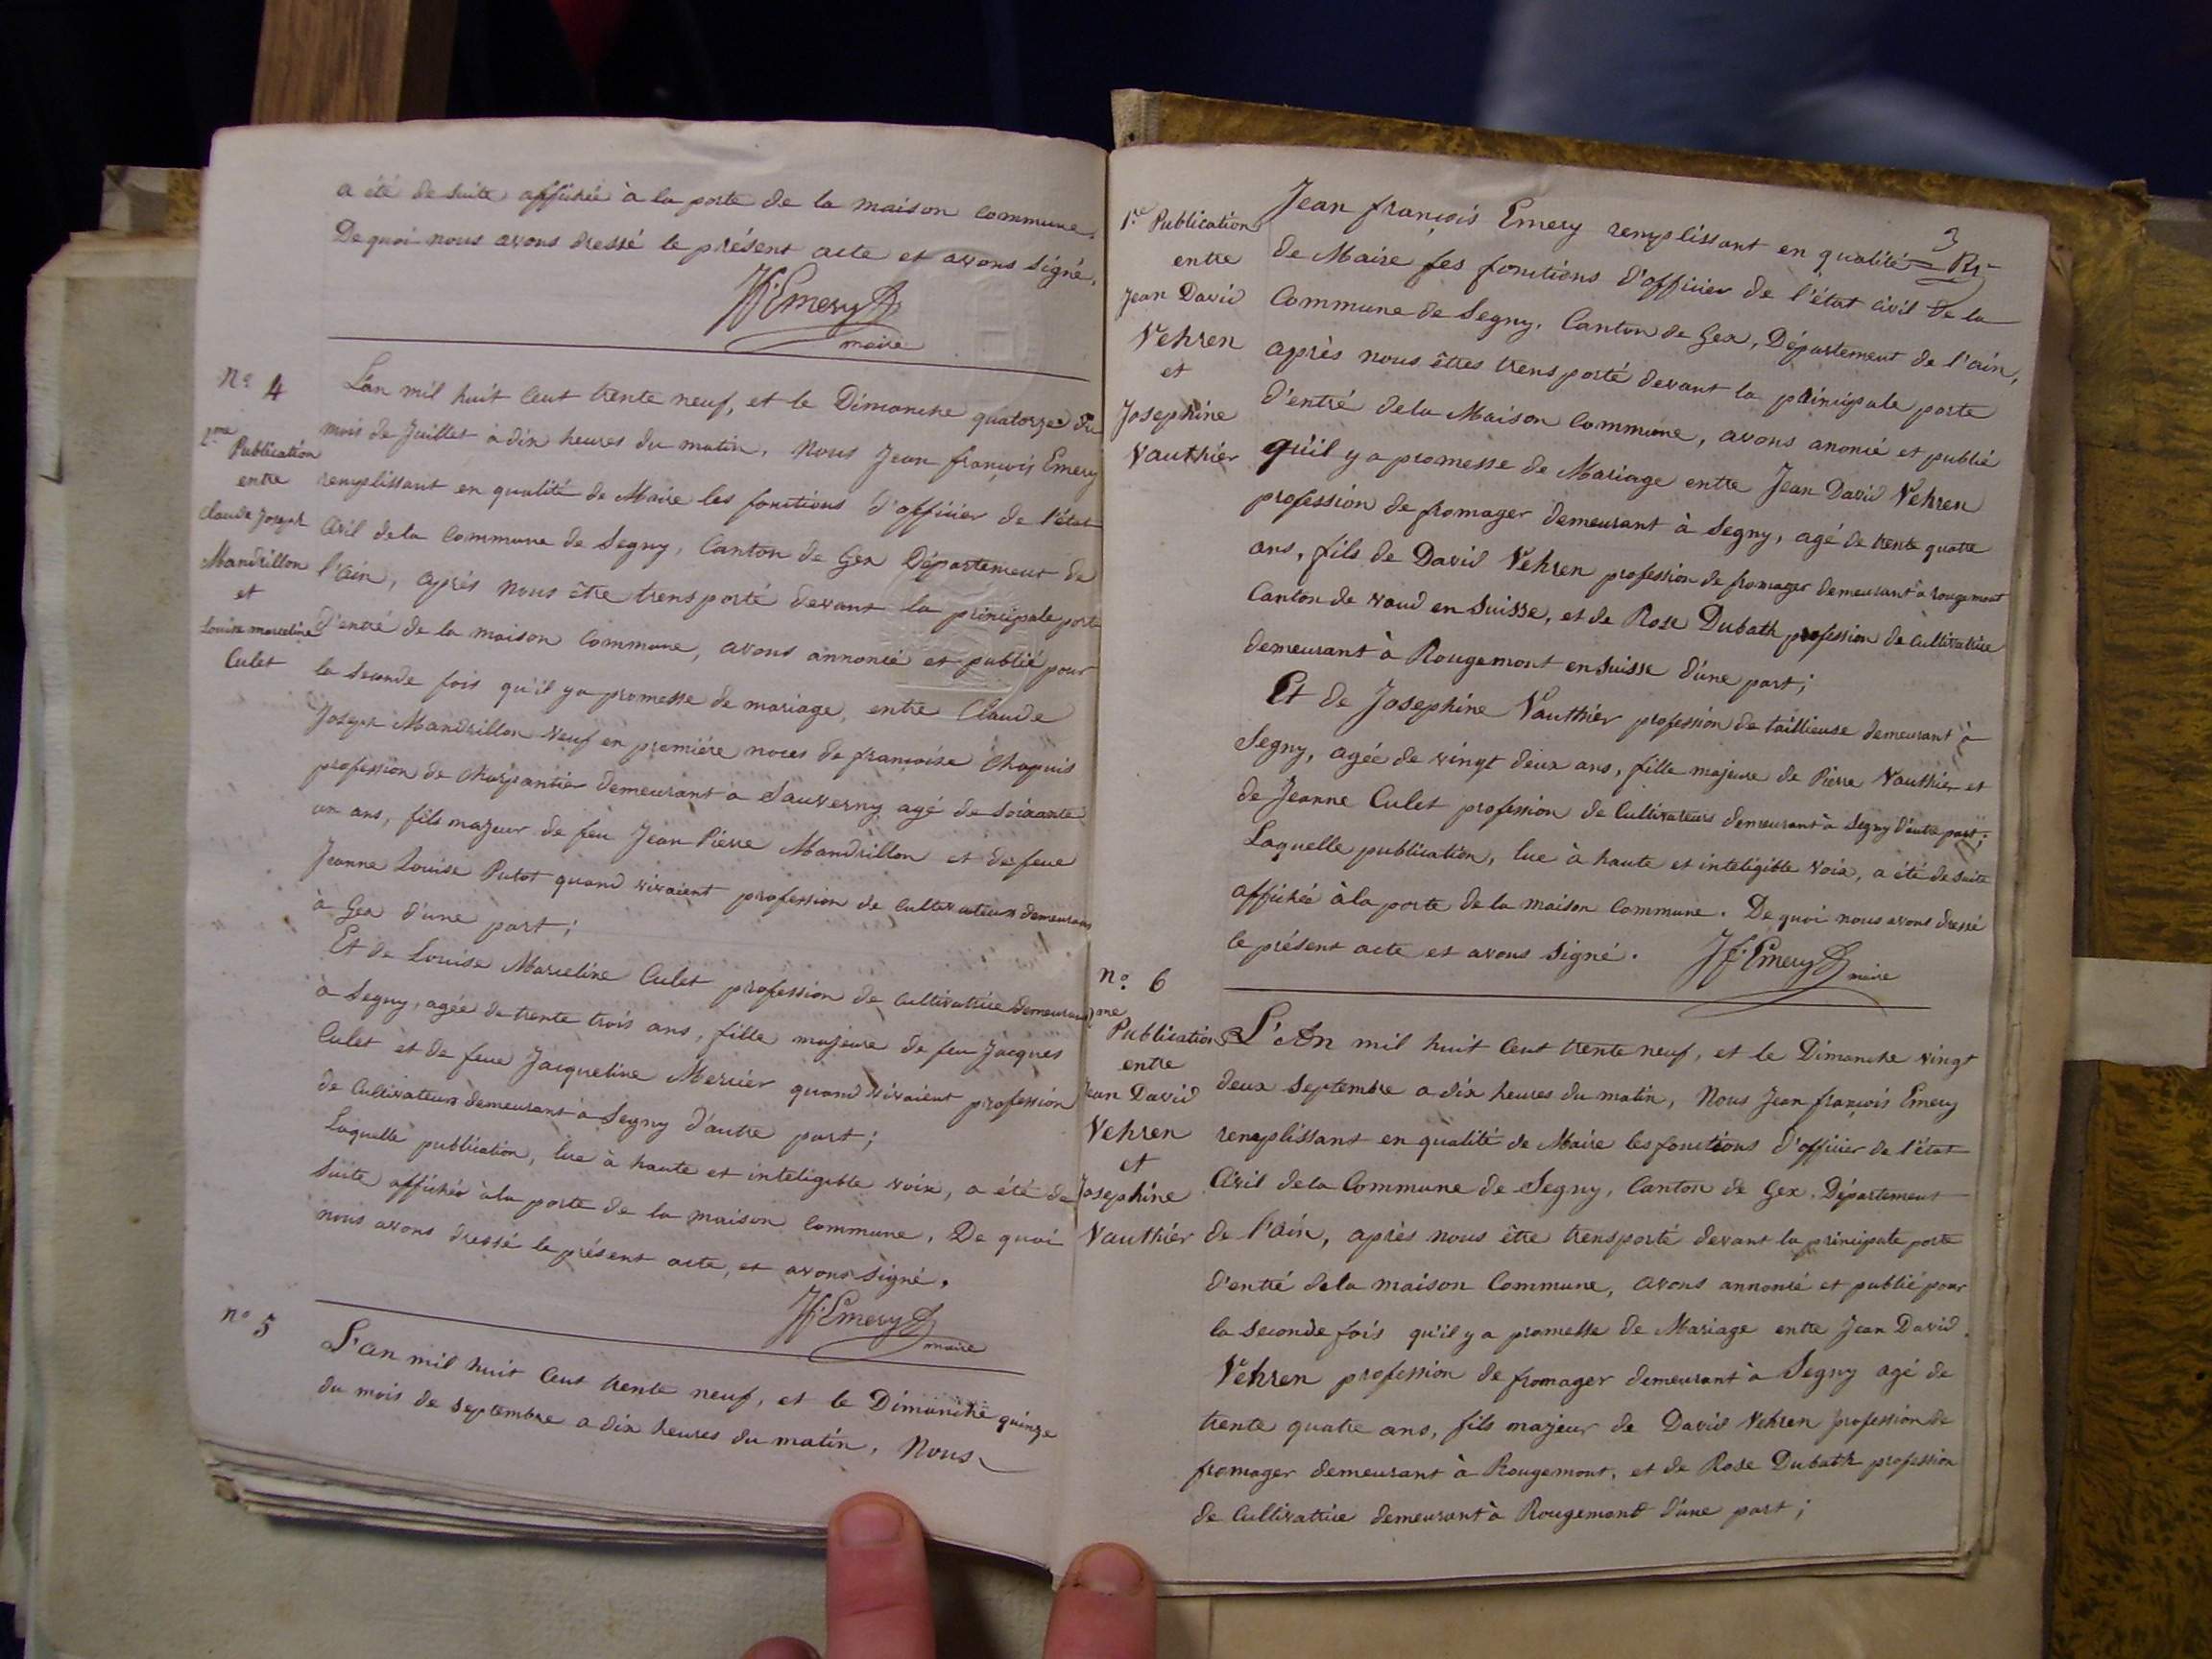 a été de suite affichée à la porte de la maison commune.
De quoi nous avons dressé le présent acte et avons signé.
Jf. Emery
maire
N° 4
2me
Publication
entre
Claude Joseph
Mandrillon
et
Louise marceline
Culet
L'an mil huit Cent trente neuf, et le Dimanche quatorze du
mois de Juillet à dix heures du matin. Nous Jean françois Emery
remplissant en qualité de Maire les fonctions d'officier de l'état
Civil dela Commune de Segny, Canton de Gex Département de
l'ain, après nous être transporté devant la principale porte
d'entré de la maison Commune, avons annoncé et publié pour
la seconde fois qu'il y a promesse de mariage, entre Claude
Joseph Mandrillon veuf en première noces de françoise Chapuis
profession de Charpantier demeurant à Sauverny agé de soixante
un ans, fils majeur de feu Jean Pierre Mandrillon et de feue
Jeanne Louise Putot quand vivaient profession de Cultivateurs demeurans
à Gex d'une part;
Et de Louise Marceline Culet profession de Cultivatrice demeurant
à Segny, agée de trente trois ans, fille majeure de feu Jacques
Culet et de feue Jacqueline Mercier quand vivaient profession
de Cultivateurs demeurant à Segny d'autre part;
Laquelle publication, lue à haute et inteligible voix, a été de
suite affichée à la porte de la maison Commune. De quoi
nous avons dressé le présent acte, et avons signé.
Jf. Emery
maire
n° 5
L'an mil huit Cent trente neuf, et le Dimanche quinze
du mois de septembre a dix heures du matin, Nous
3
1re Publication
entre
Jean David
Vehren
et
Josephine
Vauthier
Jean françois Emery remplissant en qualité
de Maire les fonctions d'officier de l'état civil de la
Commune de Segny, Canton de Gex, Département de l'ain,
après nous êtres transporté devant la principale porte
d'entré dela Maison Commune, avons anoncé et publié
qu'il y a promesse de Mariage entre Jean David Vehren
profession de fromager demeurant à Segny, agé de trente quatre
ans, fils de David Vehren profession de fromager demeurant à rougemont
Canton de vaud en Suisse, et de Rose Dubath profession de Cultivatrice
demeurant à Rougemont en Suisse d'une part;
Et de Josephine Vauthier profession de taillieuse demeurant à
Segny, agée de vingt deux ans, fille majeure de Pierre Vauthier et
de Jeanne Culet profession de Cultivateurs demeurant à Segny d'autre part;
Laquelle publication, lue à haute et inteligible voix, a été de suite
affichée à la porte de la maison Commune. De quoi nous avons dressé
le présent acte et avons signé.
Jf. Emery
maire
n° 6
2me
Publication
entre
Jean David
Vehren
et
Josephine
Vauthier
L'An mil huit Cent trente neuf, et le Dimanche vingt
deux Septembre a dix heures du matin, Nous Jean françois Emery
remplissant en qualité de Maire les fonctions d'officier de l'état
Civil dela Commune de Segny, Canton de Gex. Département
de l'Ain, après nous être transporté devant la principale porte
d'entré dela maison Commune, avons annoncé et publié pour
la seconde fois qu'il y a promesse de Mariage entre Jean David
Vehren profession de fromager demeurant à Segny agé de
trente quatre ans, fils majeur de David Vehren profession de
fromager demeurant à Rougemont, et de Rose Dubath profession
de Cultivatrice demeurant à Rougemont d'une part;